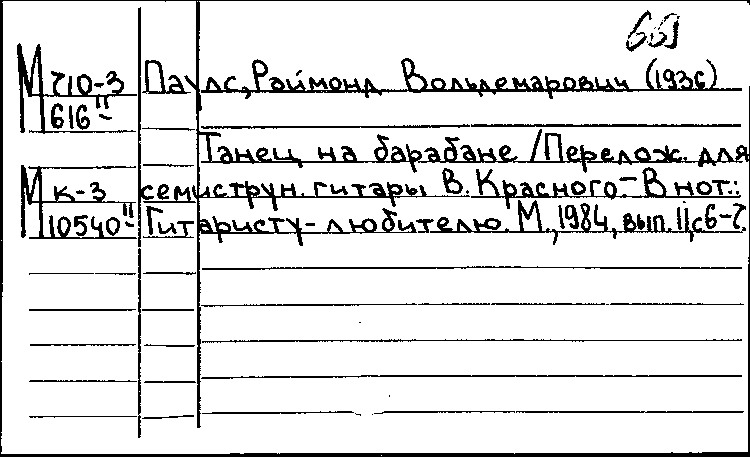 669
М 710-3 Паулс, Раймонд Вольдемарович (1936)
616 II
Танец на барабане / Перелож. для
М к-3 семиструн. гитары В. Красного. – В нот.:
10540 II Гитаристу-любителю. М., 1984, вып. 11, с 6-7.